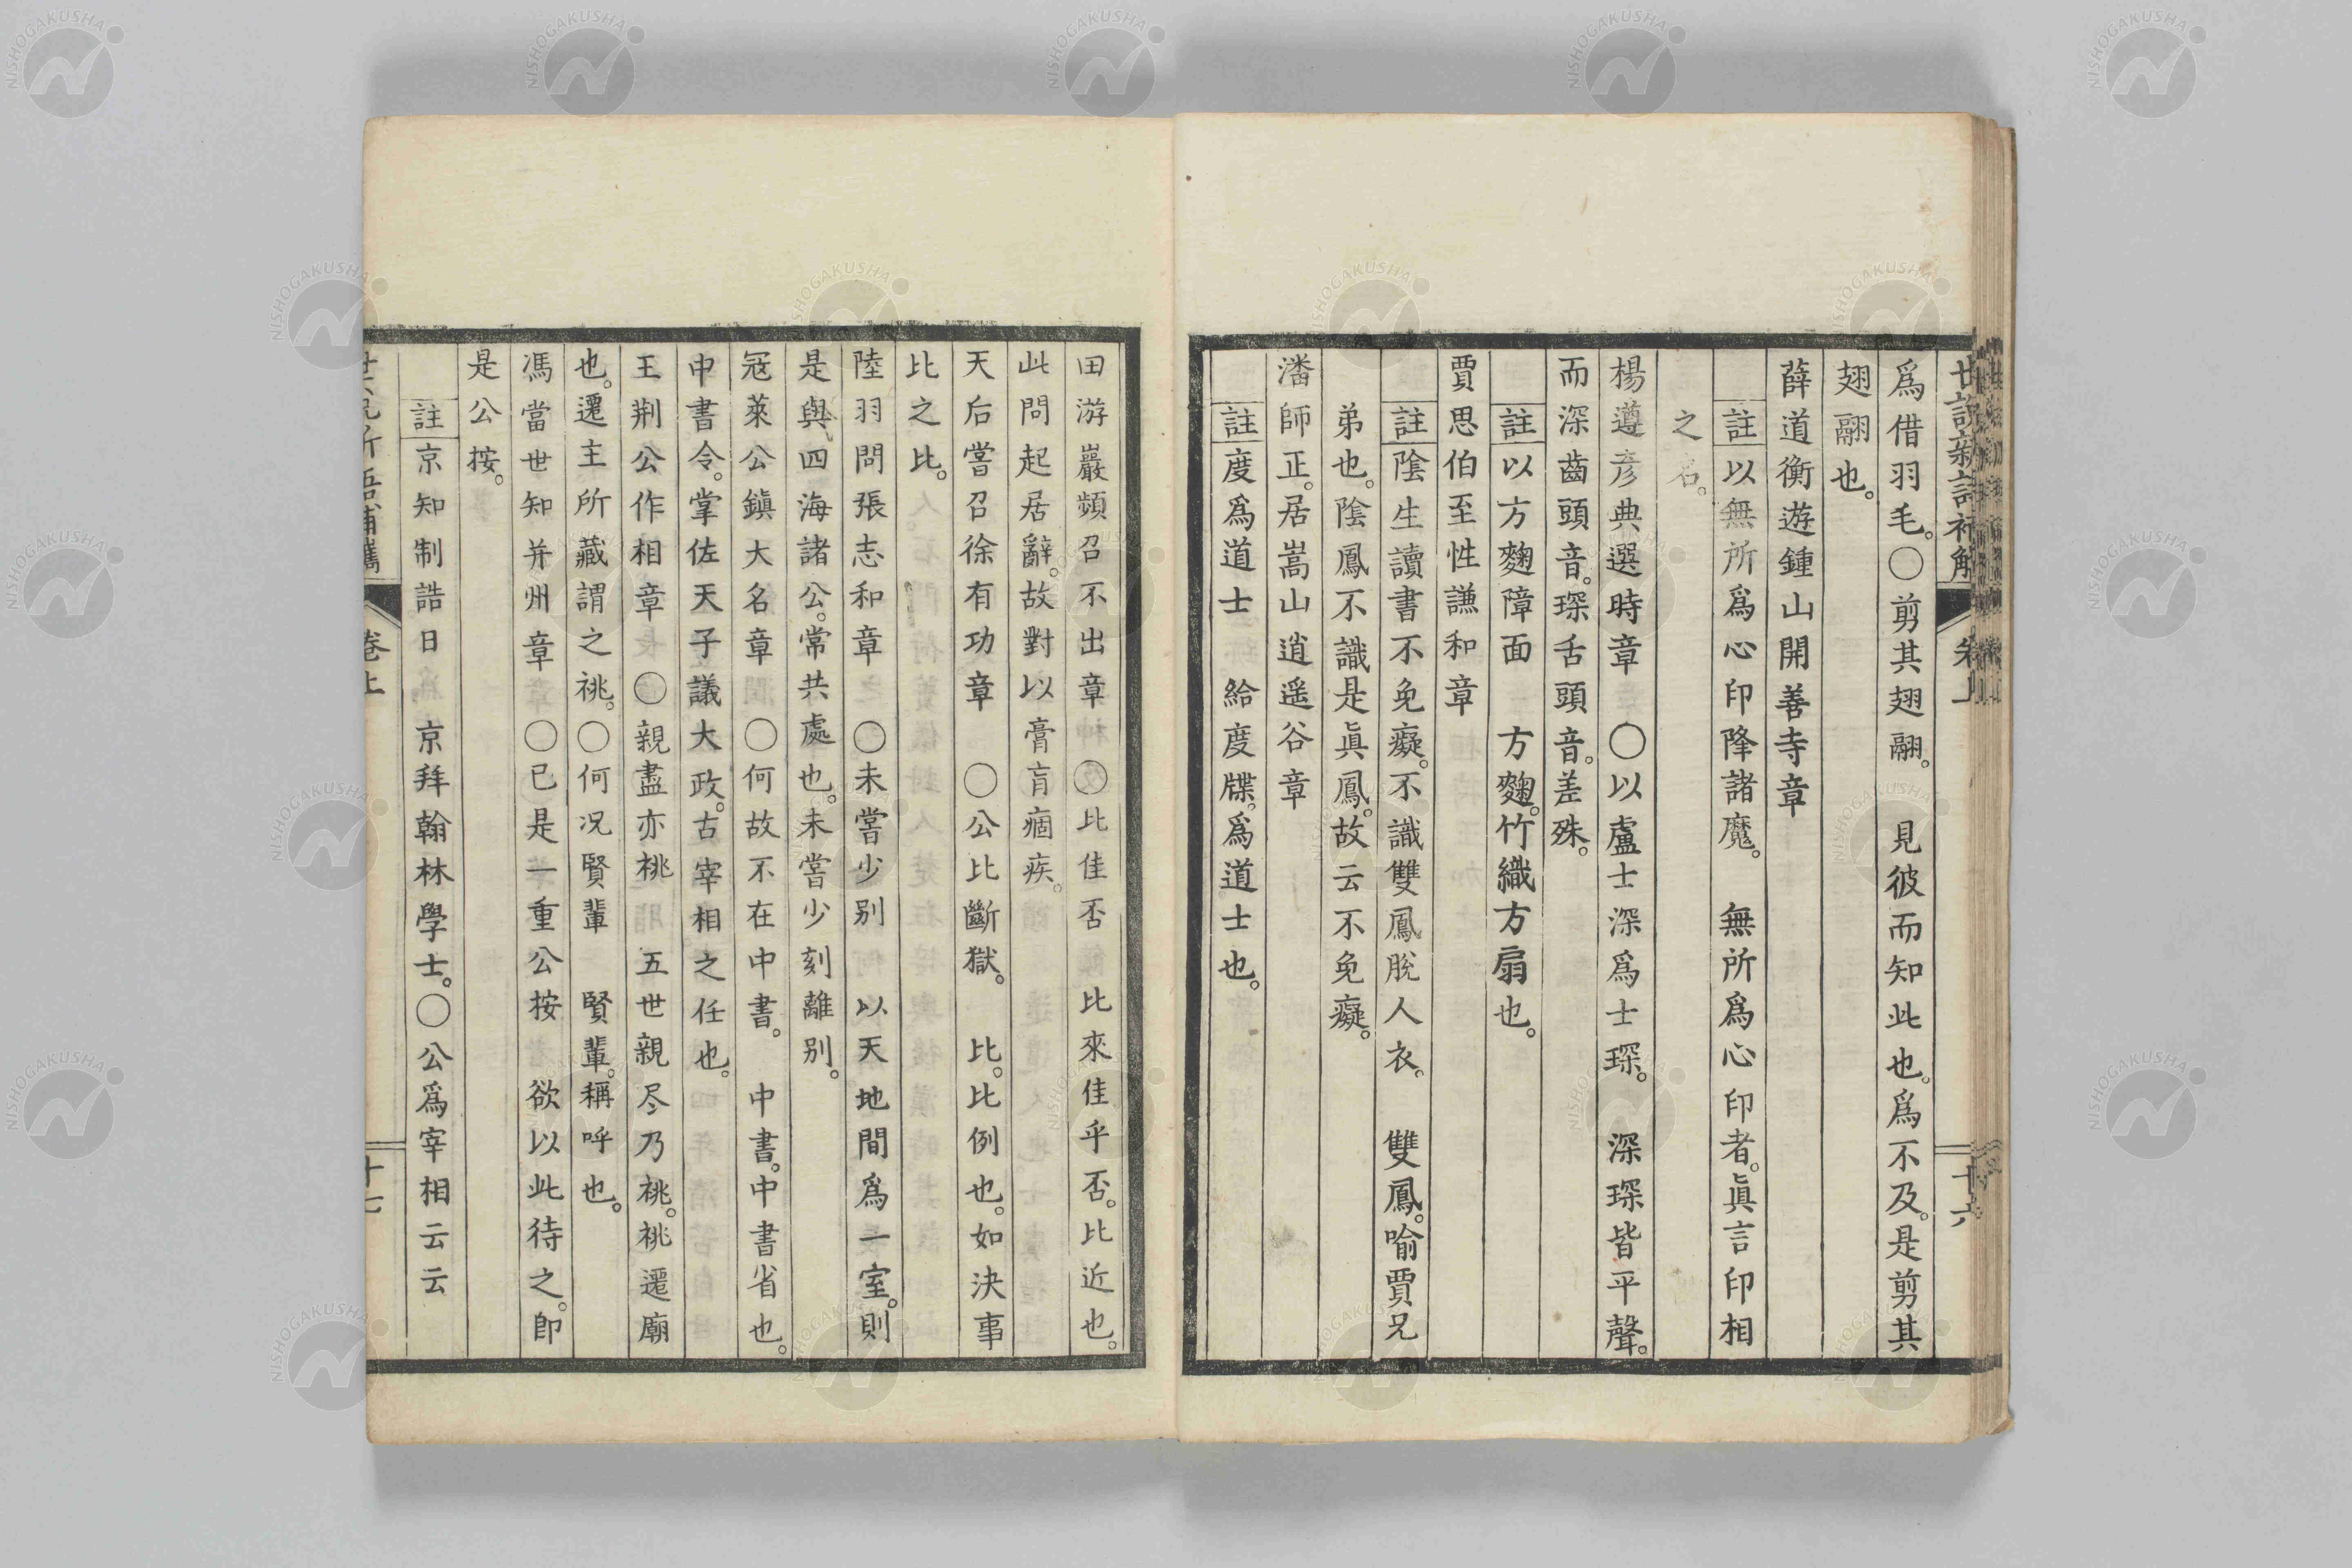 爲借羽毛。○剪其翅翮。　見彼而知此也。爲不及。是剪其
翅翮也。
薛道衡遊鍾山開善寺章
註以無所爲心印降諸魔。　無所爲心印者。眞言印相
之名。
楊遵彦典選時章　○以盧士深爲士琛。　深琛皆平聲。
而深齒頭音。琛舌頭音。差殊。
註以方麴障面　方麴。竹織方扇也。
賈思伯至性謙和章
註陰生讀書不免癡。不識雙鳳脫人衣。　雙鳳。喻賈兄
弟也。陰鳳不識是眞鳳。故云不免癡。
潘師正。居嵩山逍遥谷章
註度爲道士　給度牒。爲道士也。
十六
田游巖頻召不出章　○比佳否　比來佳乎否。比近也。
此問起居辭。故對以膏肓痼疾。
天后嘗召徐有功章　○公比斷獄。　比。比例也。如決事
比之比。
陸羽問張志和章　○未嘗少别　以天地間爲一室。則
是與四海諸公。常共處也。未嘗少刻離别。
冦萊公鎮大名章　○何故不在中書。　中書。中書省也。
中書令。掌佐天子議大政。古宰相之任也。
王荆公作相章　○親盡亦桃　五世親尽乃祧。祧遷廟
也。遷主所藏謂之祧。○何况賢輩　賢輩。稱呼也。
馮當世知并州章　○已是一重公按　欲以此待之。即
是公按。
註京知制誥日　京拜翰林學士。○公爲宰相云云
卷上
十七
NISHOGAKUSHA